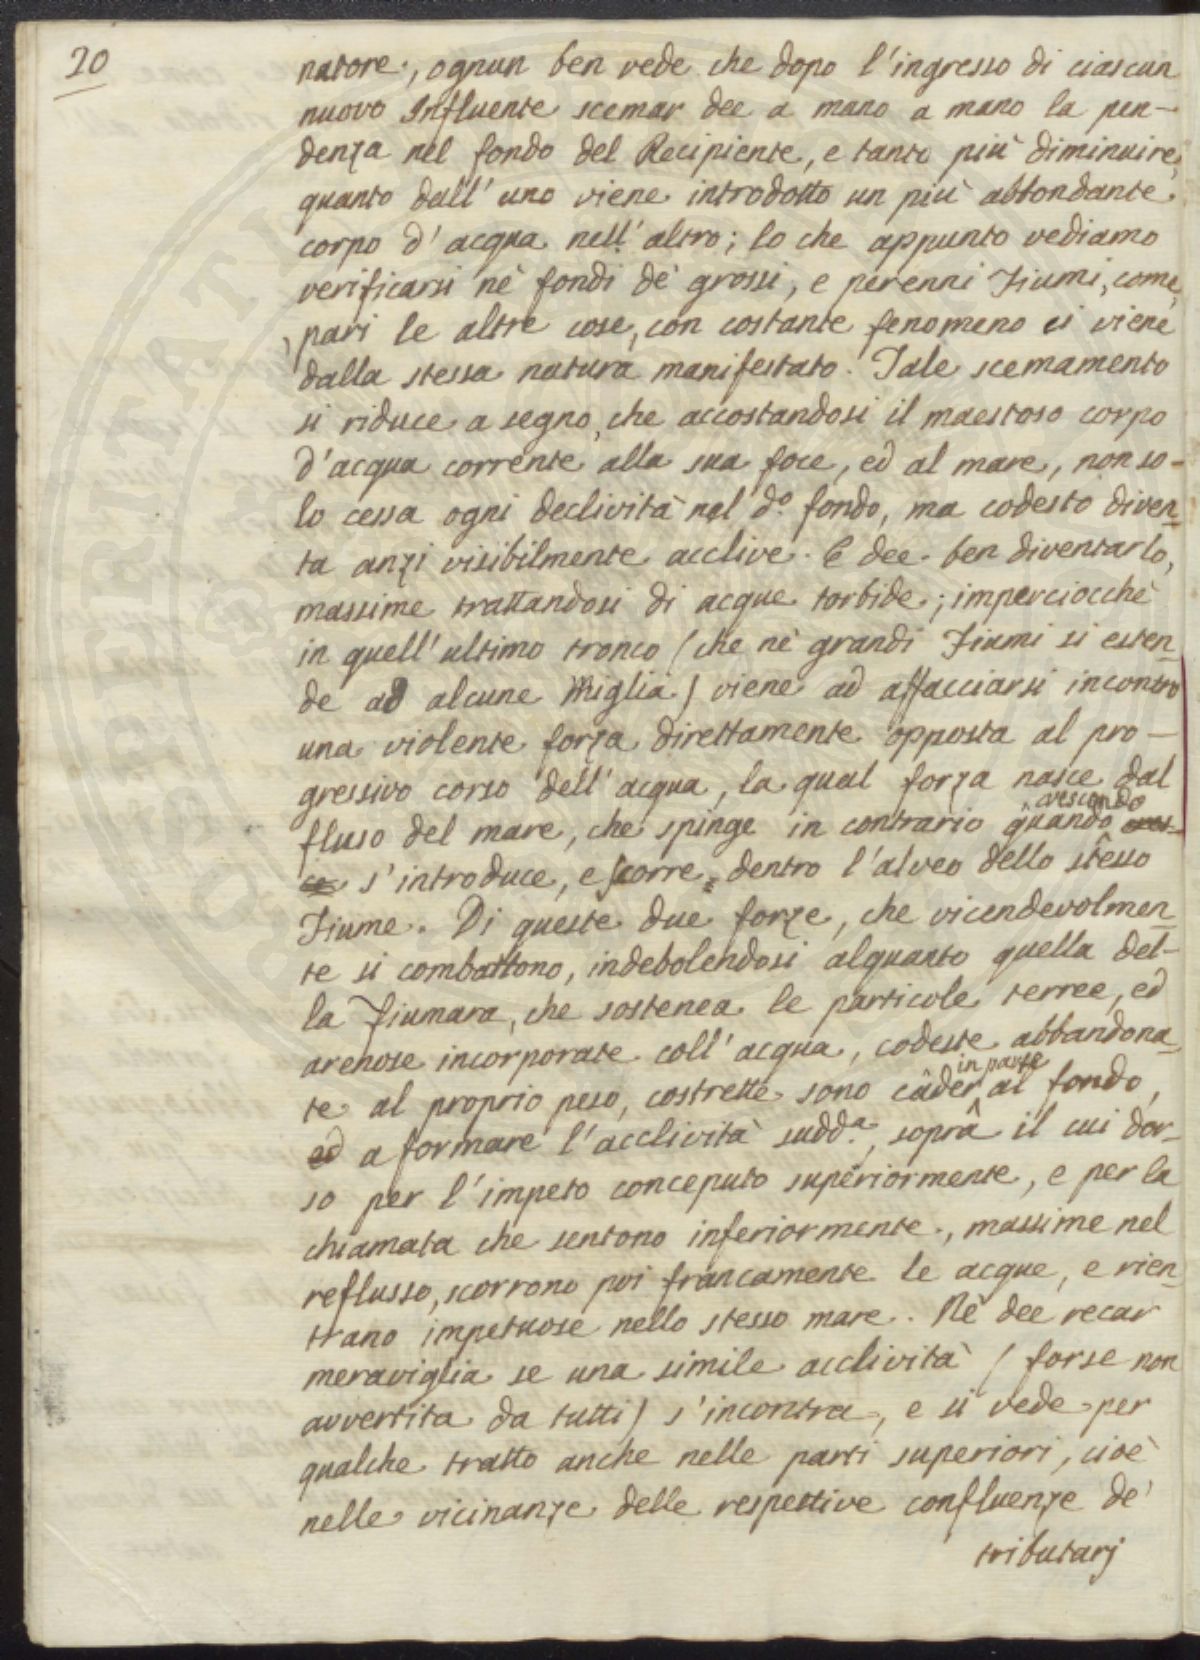 20
natore, ognun ben vede che dopo l'ingresso di ciascun
nuovo Influente scemar dee a mano a mano la pen-
denza nel fondo del Recipiente, e tanto più diminuire,
quanto dall'uno viene introdotto un più abbondante
corpo d'acqua nell'altro; lo che appunto vediamo
verificarsi nè fondi de' grossi, e perenni Fiumi, come,
pari le altre cose, con costante fenomeno ci viene
dalla stessa natura manifestato. Tale scemamento
si riduce a segno, che accostandosi il maestoso corpo
d'acqua corrente alla sua foce, ed al mare, non so-
lo cessa ogni declività nel d.o fondo, ma codesto diven-
ta anzi visibilmente acclive. E dee ben diventarlo,
massime trattandosi di acque torbide; imperciocchè
in quell'ultimo tronco (che nè grandi Fiumi si esten-
de ad alcune Miglia) viene ad affacciarsi incontro
una violente forza direttamente opposta al pro-
gressivo corso dell'acqua, la qual forza nasce dal
flusso del mare, che spinge in contrario quando crescendo
s'introduce, e scorre dentro l'alveo dello stesso
Fiume. Di queste due forze, che vicendevolmen-
te si combattono, indebolendosi alquanto quella del-
la Fiumara, che sostenea le particole terree, ed
arenose incorporate coll'acqua, codeste abbandona-
te al proprio peso, costrette sono câder in parte al fondo,
ed a formare l'acclività sudd.a, soprâ il cui dor-
so per l'impeto conceputo superiormente, e per la
chiamata che sentono inferiormente, massime nel
reflusso, scorrono poi francamente le acque, e rien-
trano impetuose nello stesso mare. Nè dee recar
meraviglia se una simile acclività (forse non
avvertita da tutti) s'incontra, e si vede per
qualche tratto anche nelle parti superiori, cioè
nelle vicinanze delle respettive confluenze de'
tributarj